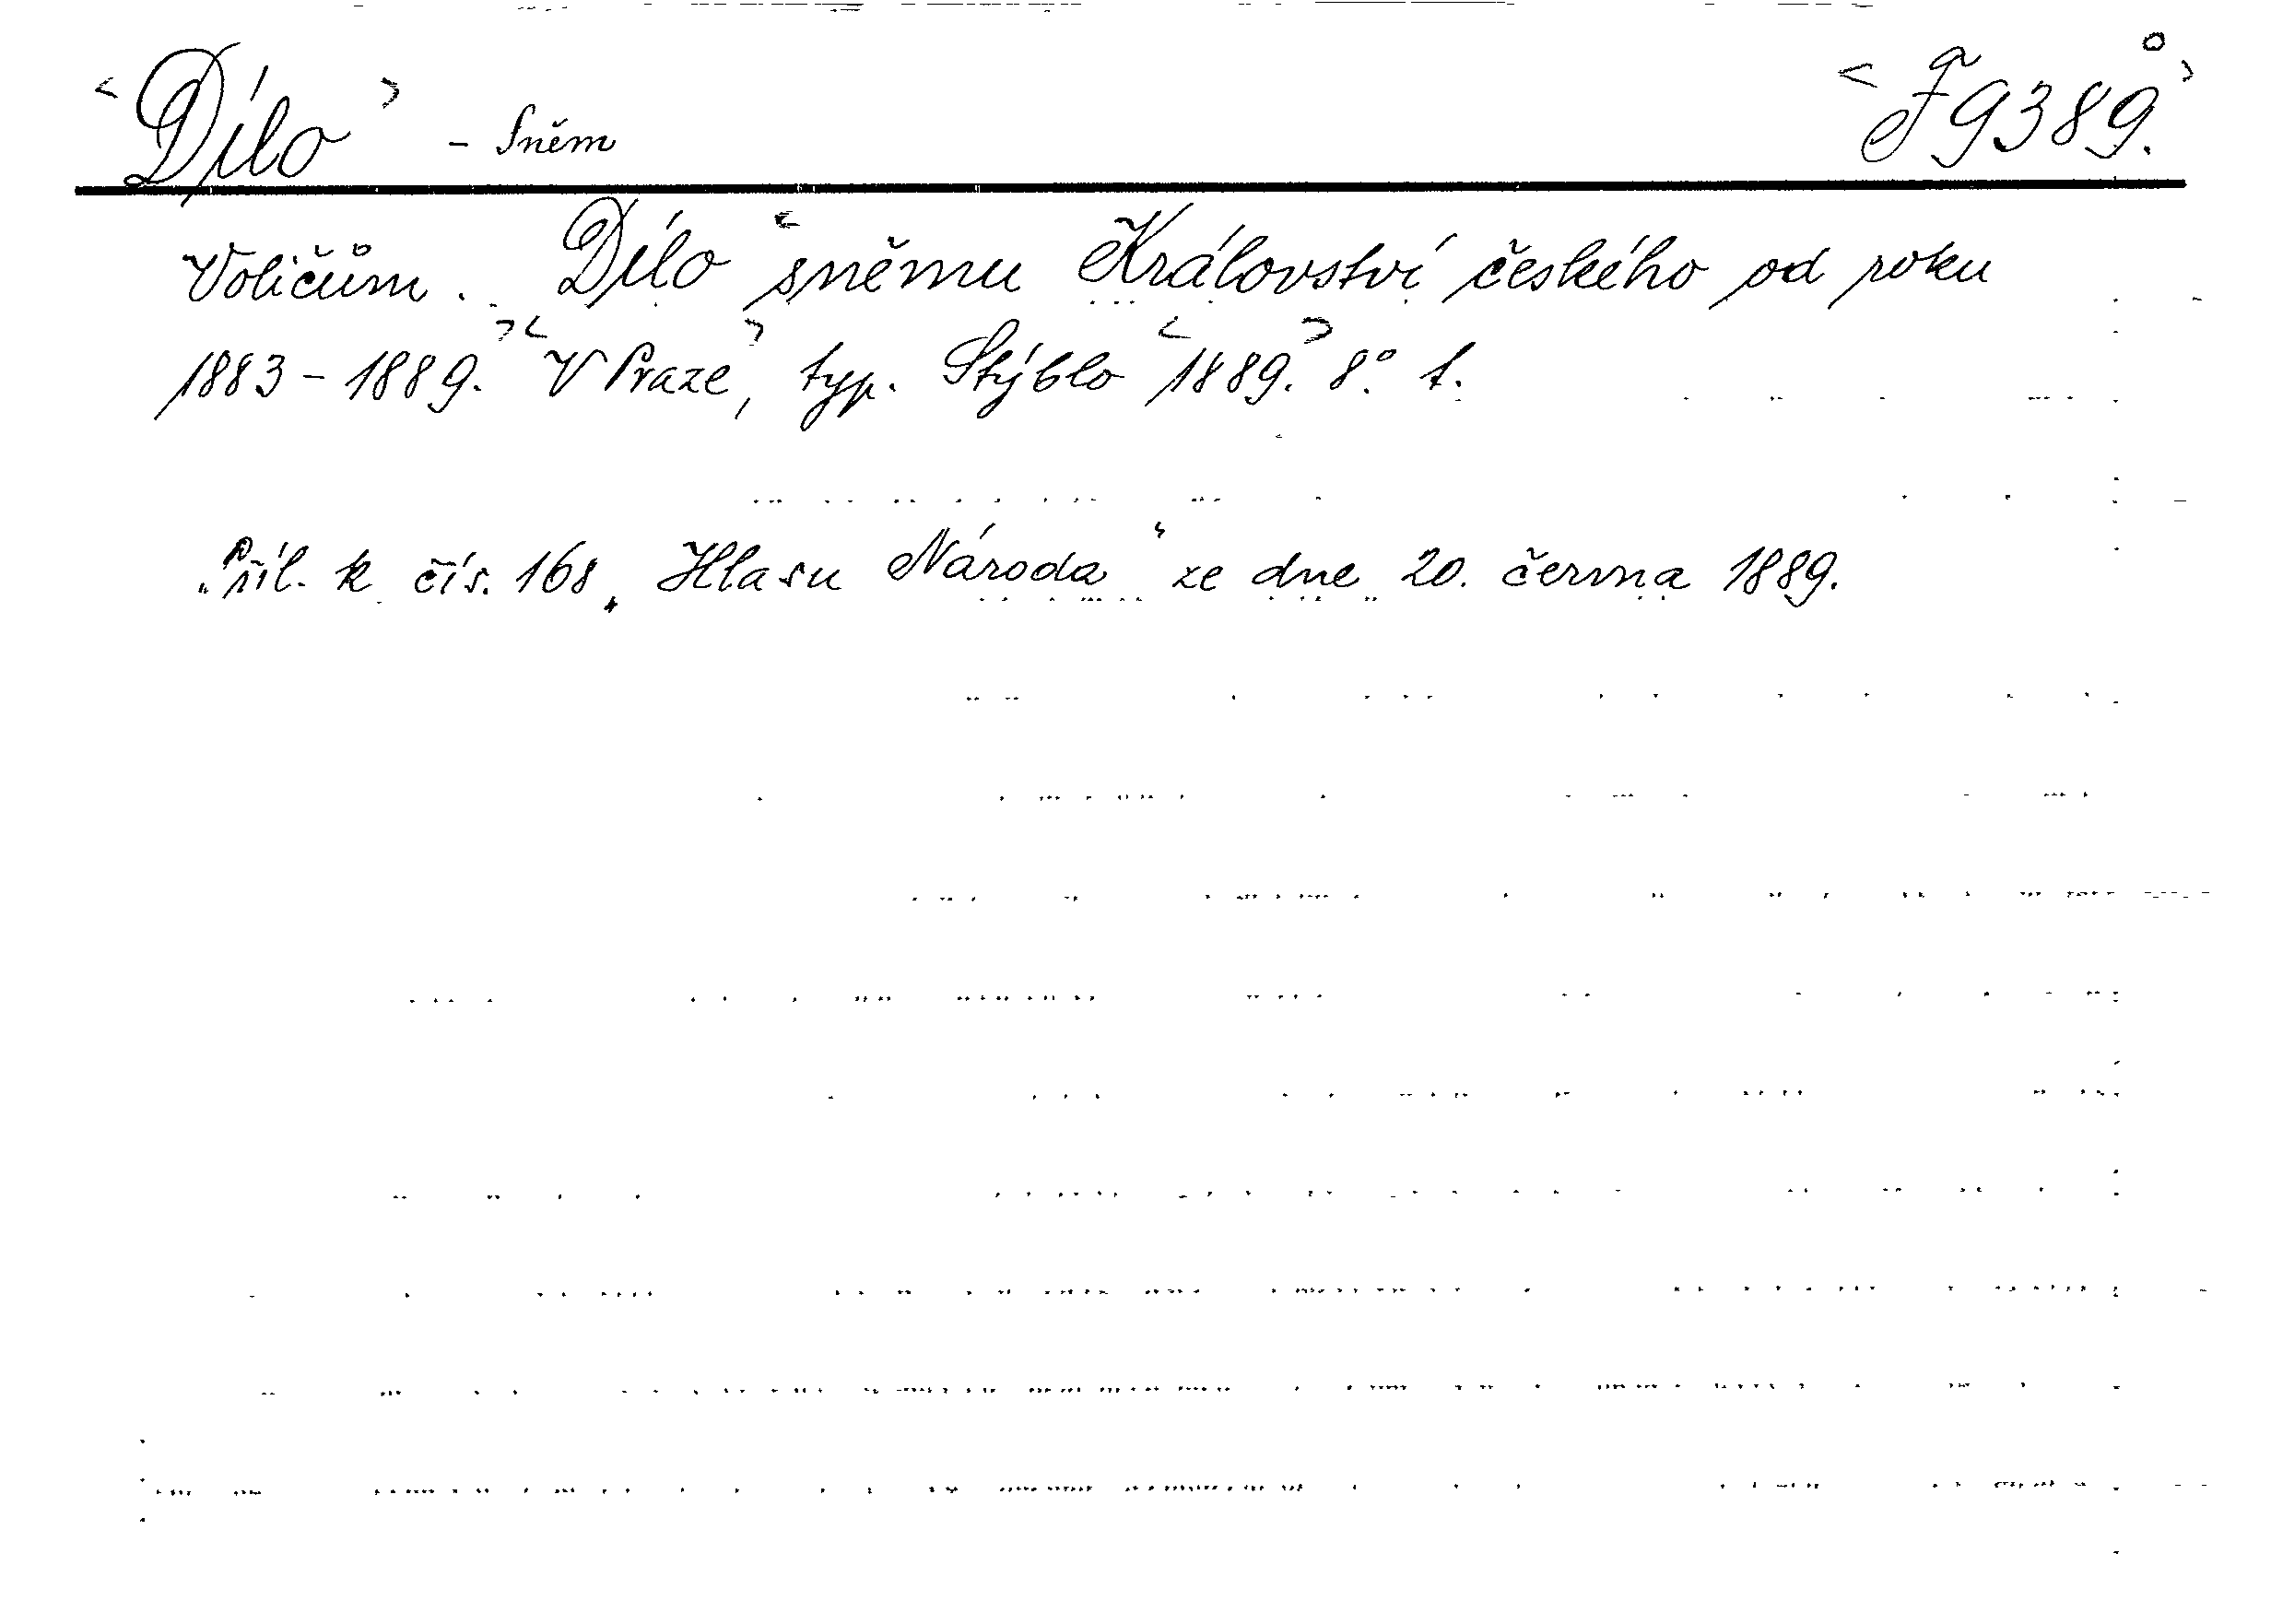 <Dílo> - Sněm <F 9389.°>
Voličům. Dílo <sněmu Království českého od roku
1883-1889.> <V Praze>, typ. Stýblo <1889.> 8.° 1.
Příl. k čís. 168 „Hlasu Národa“ ze dne 20. června 1889.